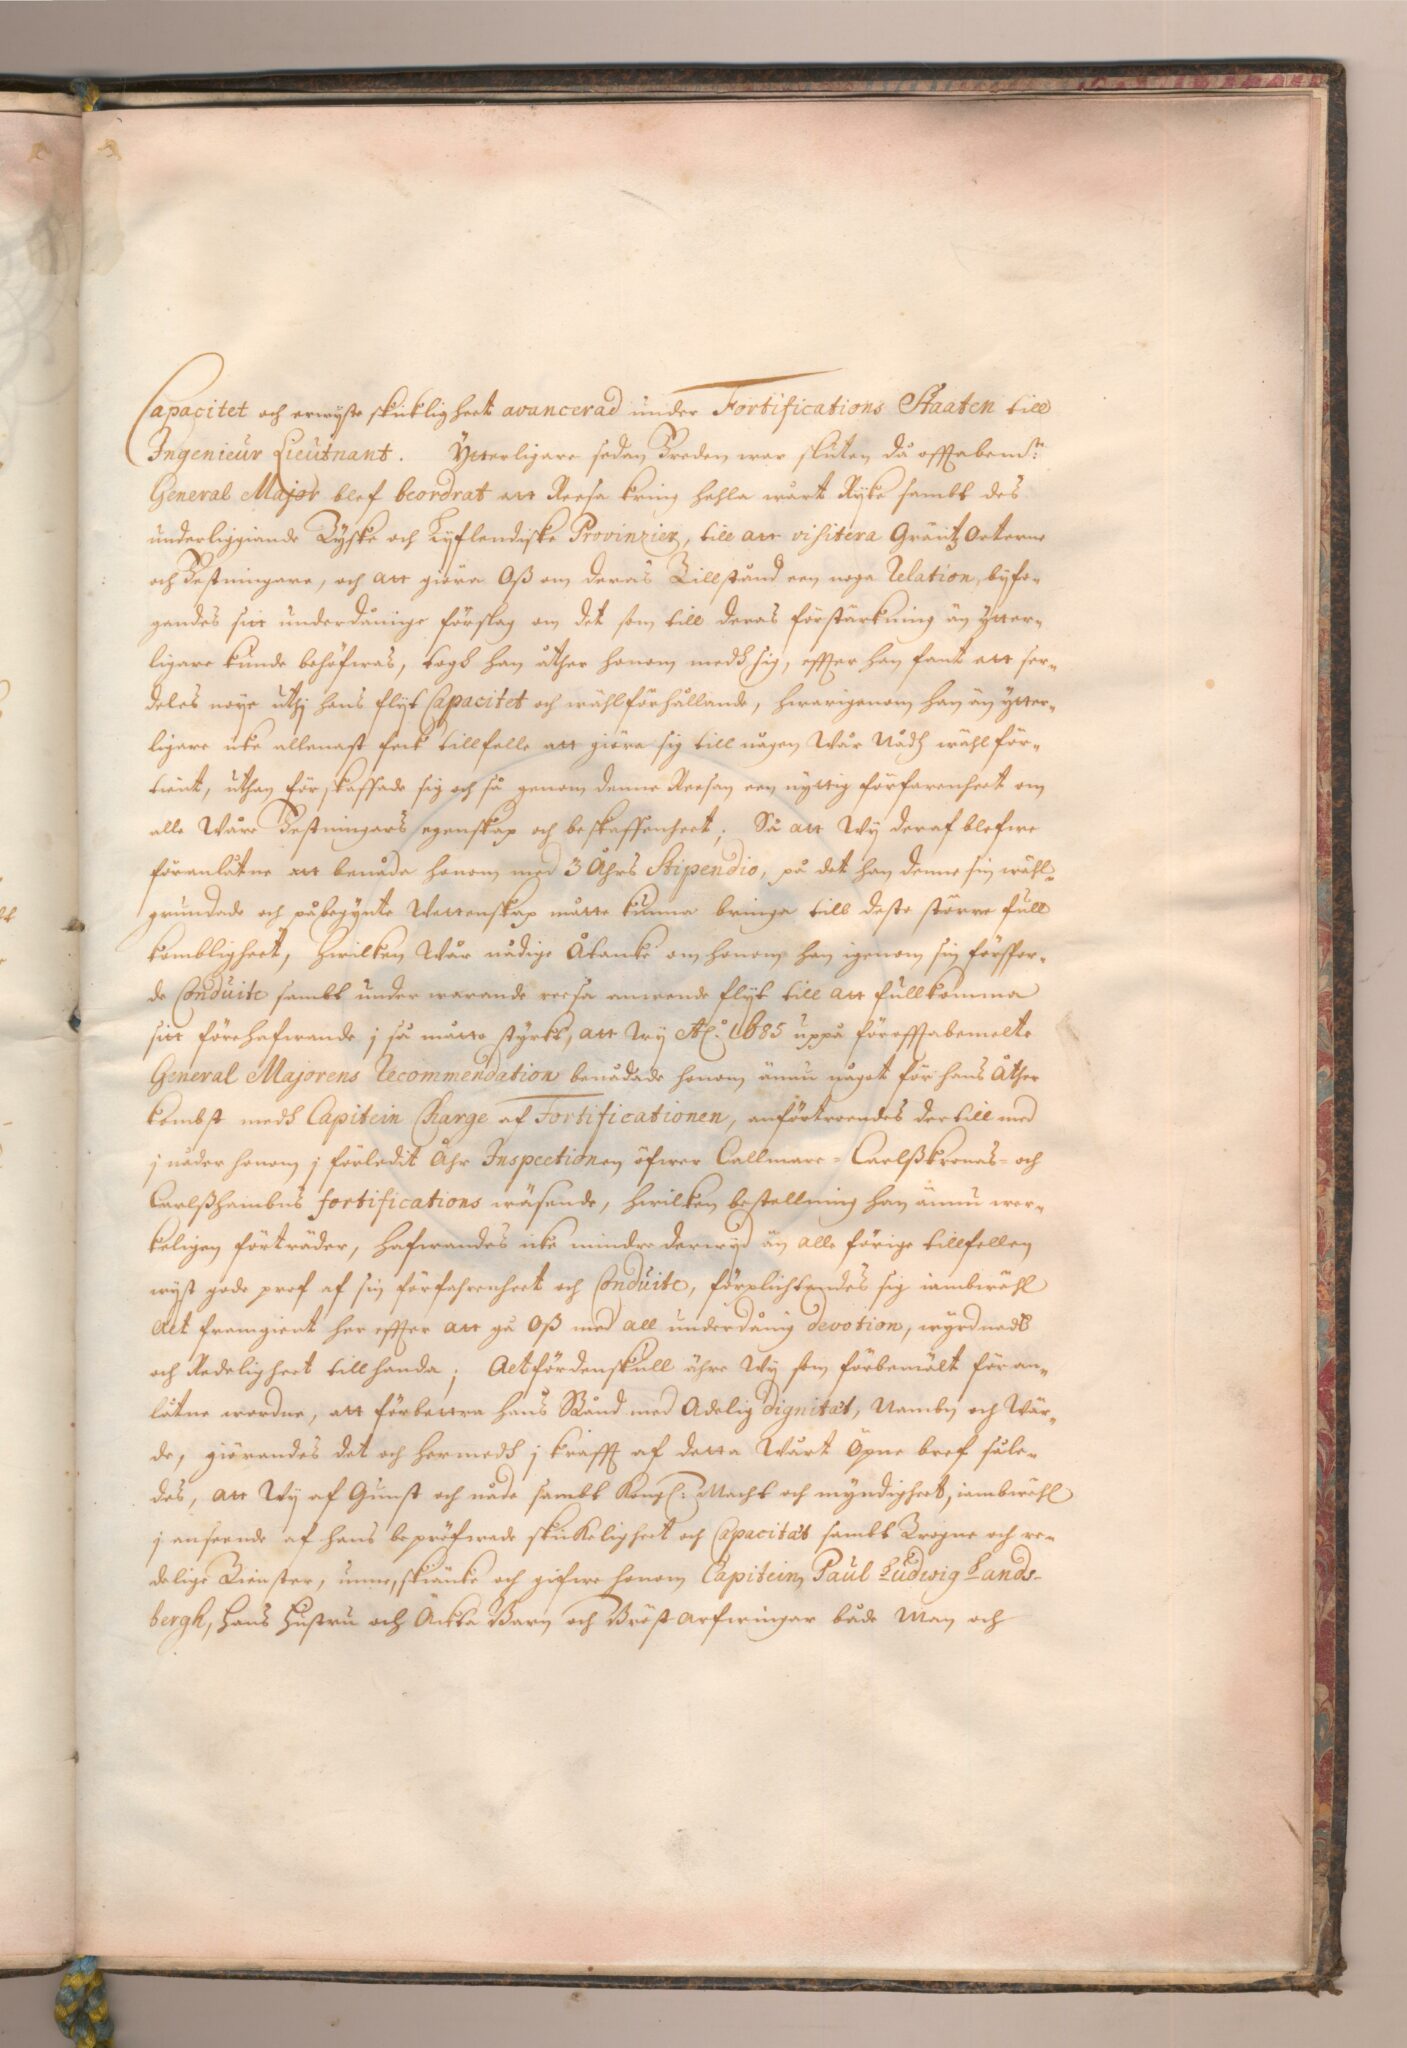 Capacitet och erwyste skickligheet avancerad under Fortifications Staaten till
Ingenieur Lieutnant. Ytterligare sedan Freden war sluten då offtabem:te
General Major blef beordrat att Reesa kring hehla wårt Ryke sambt des
underliggiande Tyske och Lyflendiske Provinzier, till att visitera Gräntz Orterne
och Festningare, och att giöra Oß om deras Tillstånd een noga Relation, byfo-
gandes sitt underdånige förslag om det som till deras förstärkning än ytter-
ligare kunde behöfwas, togh han åther honom medh sig, effter han fant ett ser-
deles nöye uthj hans flyt Capacitet och wählförhållande, hwarigenom han än ytter-
ligare icke allenast feck tillfelle att giöra sig till någon Wår Nådh wählför-
tient, uthan förskaffade sig och så genom denne Reesan een nyttig förfarenheet om
alle Wåre Festningars egenskap och beskaffenheet; Så att Wy deraf blefwe
föranlåtne att benåda honom med 3 Åhrs Stipendio, på det han denne sin wähl-
grundade och påbegynte Wettenskap måtte kunna bringa till deste större full
kombligheet, hwilken Wår nådige Åtanke om honom han igenom sin förspor-
de Conduite sambt under warande reesa anwende flyt till att fullkomma
sitt förehafwande j så måtto styrkt, att Wy A:o 1685 uppå föreofftabemelte
General Majorens Recommendation benådade honom ännu något för hans Åther
kombst medh Capitein Charge af Fortificationen, anförtroendes dertill med
j nåder honom j förledit Åhr Inspectionen öfwer Callmare- Carlßkrones- och
Carlßhambns fortifications wäsende, hwilken bestellning han ännu wer-
keligen förträder, hafwandes icke mindre derwyd än alle förige tillfellen
wyst gode prof af sin förfahrenheet och Conduite, förplichtandes sig iämbwähl
alt framgient her effter att gå Oß med all underdånig devotion, wyrdnadt
och Redeligheet tillhanda; Altfördenskull ähre Wy som förbemält föran-
låtne wordne, att förbettra hans Stånd med Adelig dignitet, Nambn och Wär-
de, giörandes det och hermedh j krafft af detta Wårt Öpne bref såle-
des, att Wy af Gunst och nåde sambt Kongl: Macht och myndigheet, iämbwähl
j anseende af hans bepröfwade skickeligheet och Capacitet sambt Trogne och re-
delige Tienster, unne, skiänke och gifwe honom Capitein Paul Ludwig Lands-
bergh, Hans Hustru och Äckta Barn och Bröst arfwingar både Man och